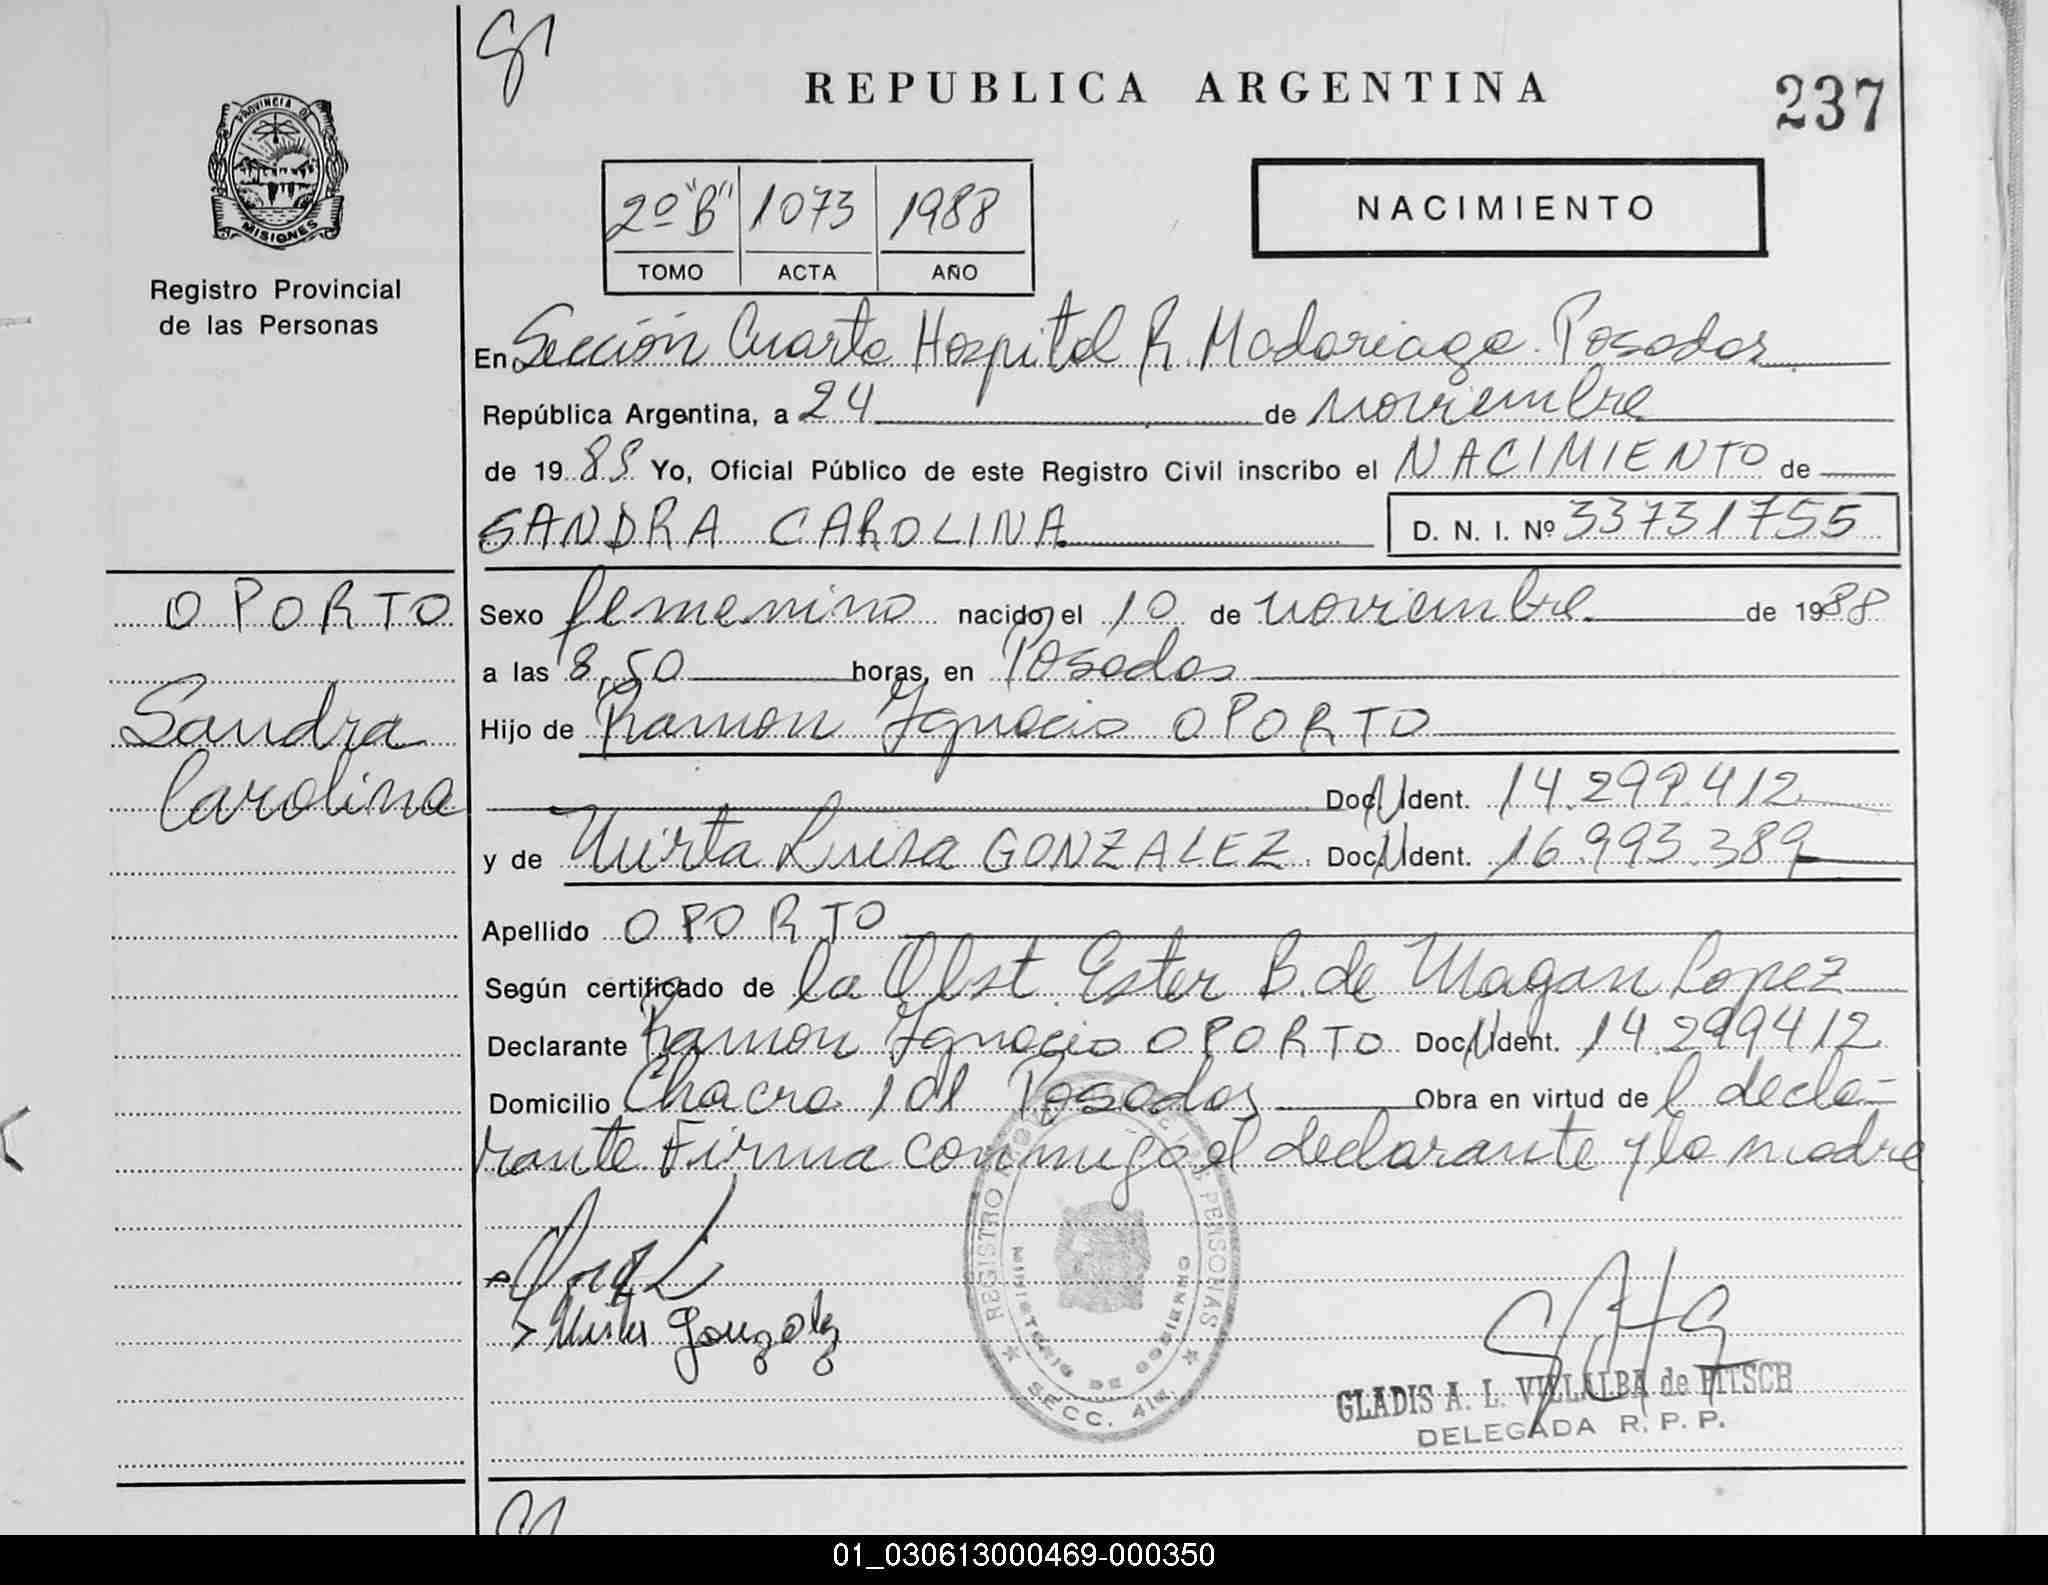 REPUBLICA ARGENTINA
237
PROVINCIA DE
MISIONES
Registro Provincial
de las Personas
2º "B" 1073 1988
TOMO ACTA AÑO
NACIMIENTO
En Sección Cuarta Hospital R. Madariaga. Posadas
República Argentina, a 24 de noviembre
de 19 88 Yo, Oficial Público de este Registro Civil inscribo el NACIMIENTO de
SANDRA CAROLINA D. N. I. Nº 33731755
OPORTO
Sandra
Carolina
Sexo femenino nacido el 10 de noviembre de 1988
a las 8,50 horas, en Posadas
Hijo de Ramon Ignacio OPORTO
Doc. N Ident. 14.299.412
y de Mirta Luisa GONZALEZ. Doc. N Ident. 16.993.389
Apellido OPORTO
Según certificado de la Obst. Ester B. de Magan Lopez
Declarante Ramon Ignacio OPORTO Doc. N Ident. 14.299412
Domicilio Chacra 101 Posadas Obra en virtud de l decla-
rante Firma conmigo el declarante y la madre
Mirta Gonzalez
REGISTRO PERSONAS
MINISTERIO DE GOBIERNO
SECC. 4ta.
GLADIS A. L. VILLALBA de PITSCH
DELEGADA R. P. P.
01_030613000469-000350